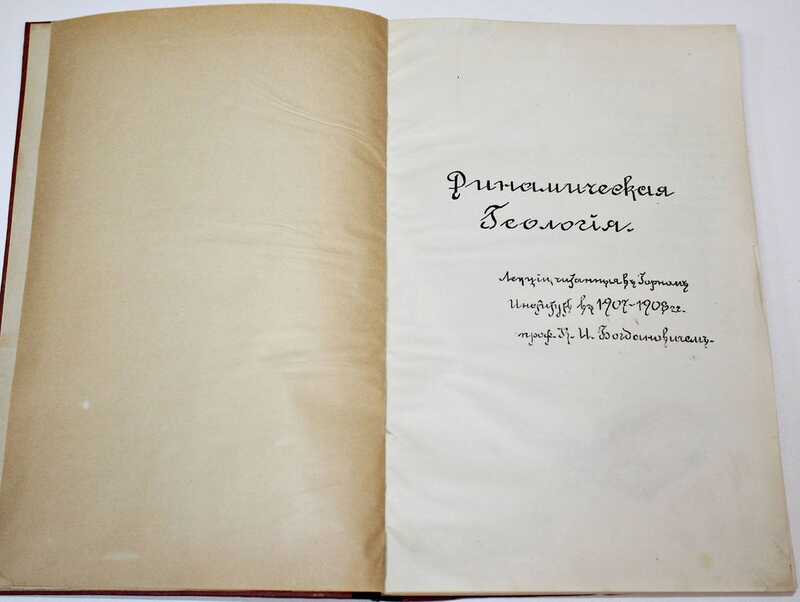 Динамическая
Геологія.
Лекціи, читанныя въ Горномъ
Институтѣ въ 1907-1908 гг.
проф. К. И. Богдановичемъ.